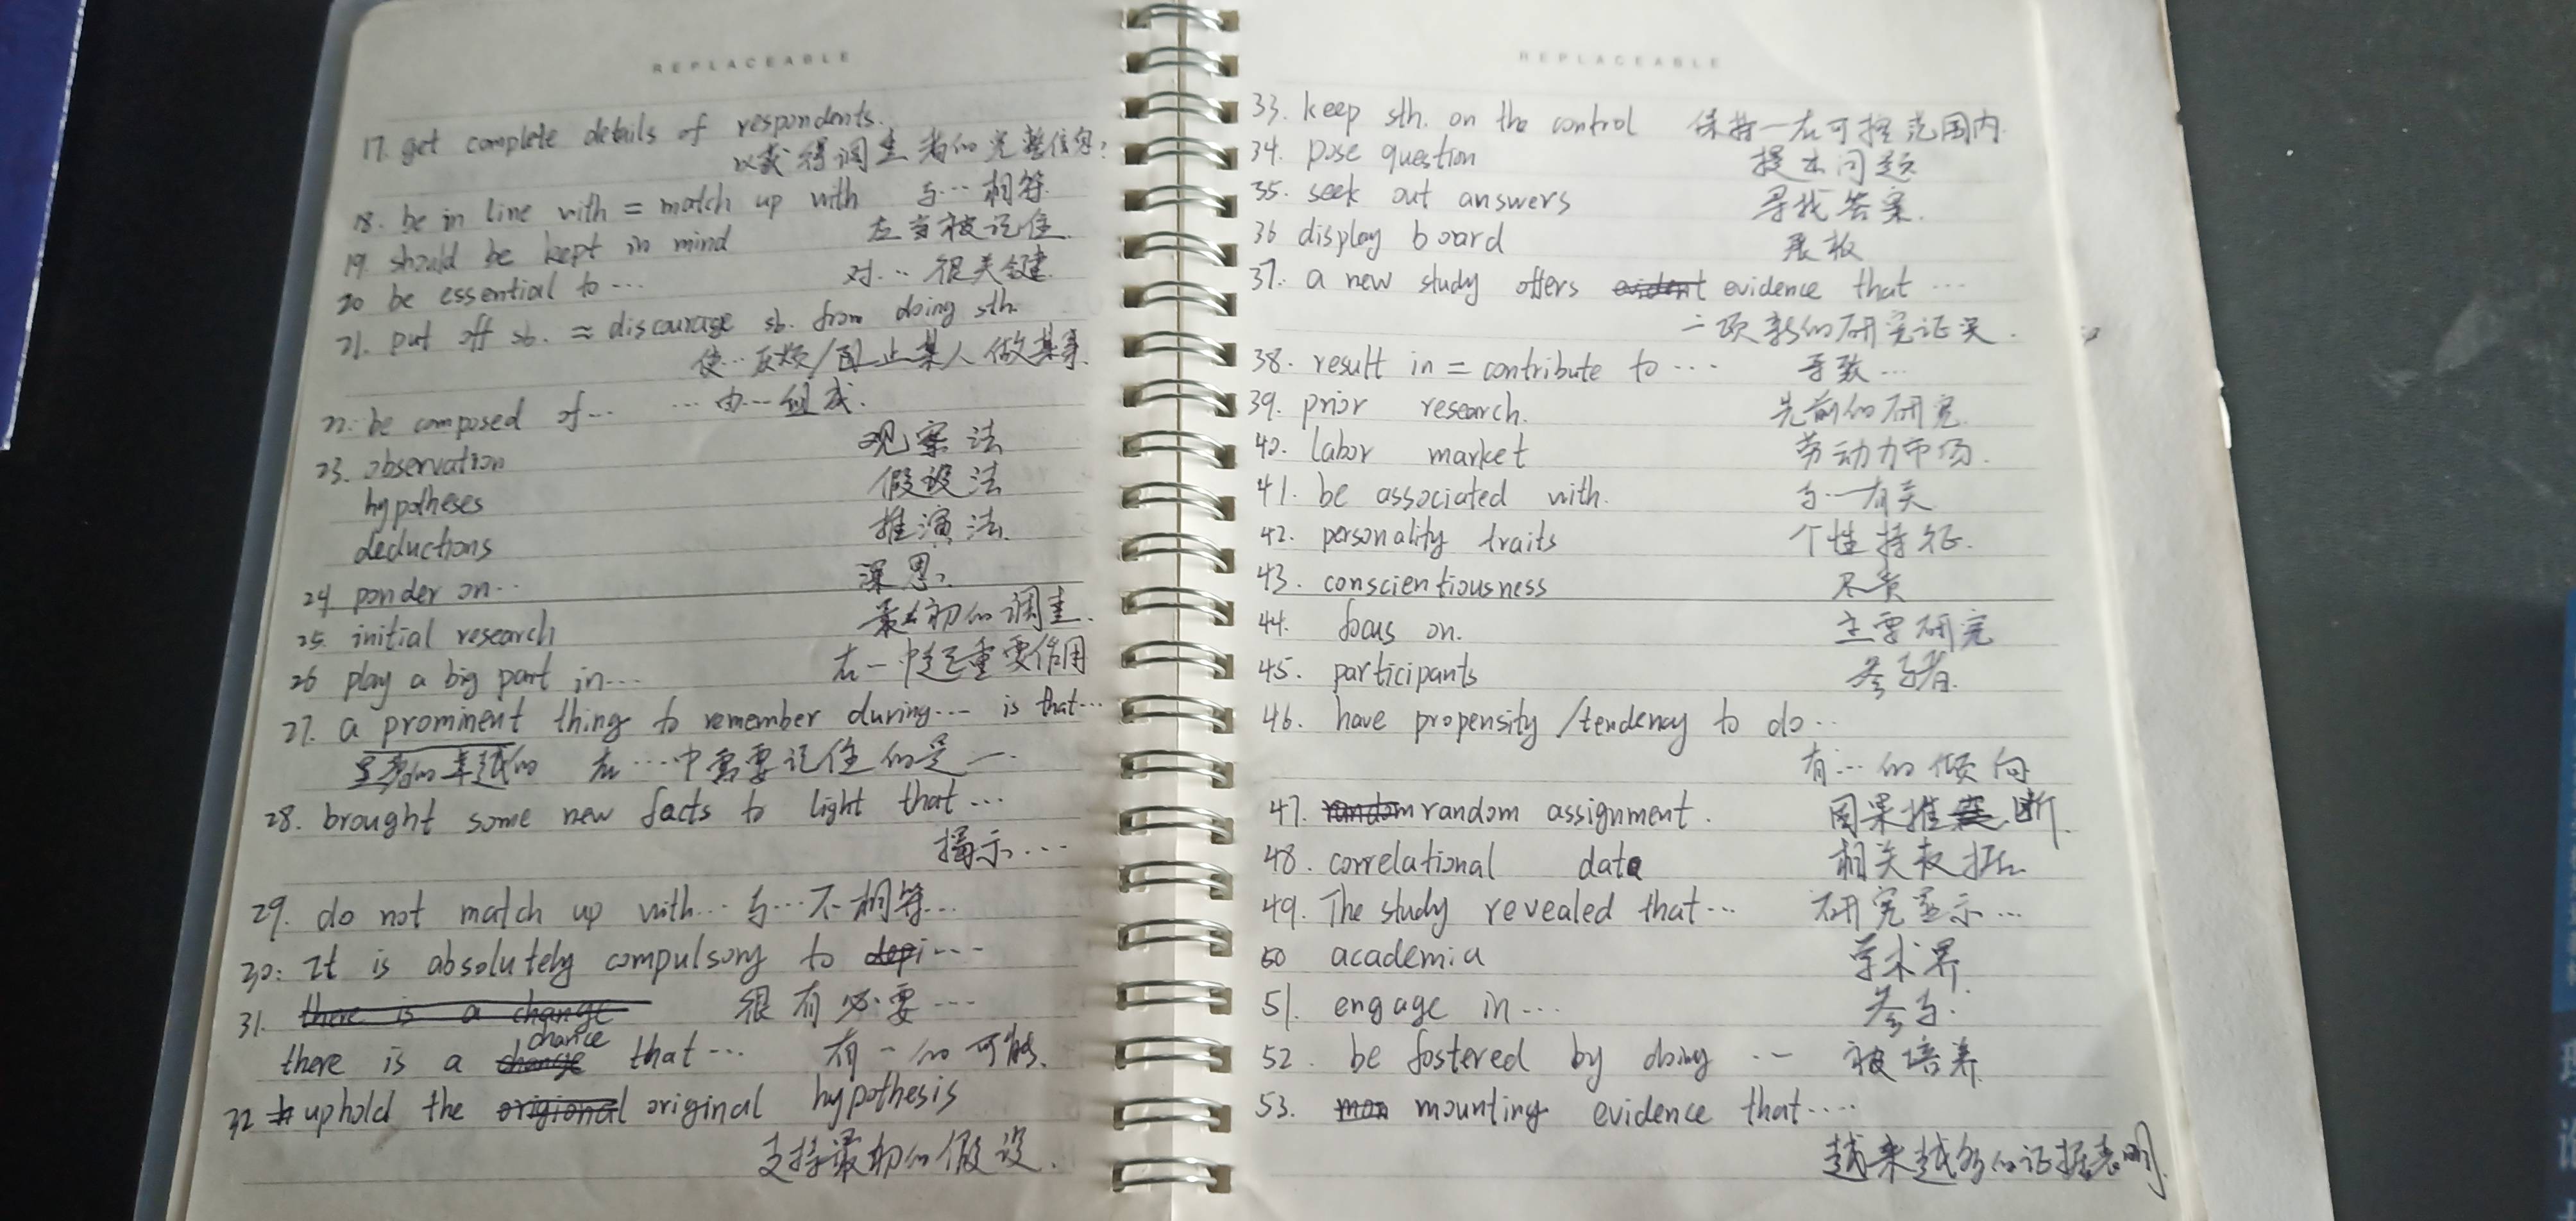 REPLACEABLE
17. get complete details of respondents.
以获得调查者的完整信息.
18. be in line with = match up with 与…相符
19. should be kept in mind 应当被记住.
20 be essential to … 对… 很关键.
21. put off sb. ≈ discourage sb. from doing sth.
使…反烦/阻止某人做某事.
22. be composed of… …由…组成.
23. observation 观察法
hypotheses 假设法
deductions 推演法.
24 ponder on… 深思.
25. initial research 最初的调查.
26 play a big part in… 在…中起重要作用
27. a prominent thing to remember during… is that…
显著的卓越的 在…中需要记住的是…
28. brought some new facts to light that…
揭示…
29. do not match up with… 与…不相符…
30. It is absolutely compulsory to depi…
31. there is a change 很有必要…
chance
there is a change that… 有…的可能.
32 uphold the origional original hypothesis
支持最初的假设.
REPLACEABLE
33. keep sth. on the control 保持…在可控范围内.
34. pose question 提出问题
35. seek out answers 寻找答案.
36 display board 展板
37. a new study offers evident evidence that …
一项新的研究证实.
38. result in = contribute to … 导致…
39. prior research. 先前的研究.
40. labor market 劳动力市场.
41. be associated with. 与…有关
42. personality traits 个性特征.
43. conscientiousness 尽责
44. focus on. 主要研究
45. participants 参与者.
46. have propensity /tendency to do …
有…的倾向
47. random random assignment. 因果推断.
48. correlational data 相关数据
49. The study revealed that… 研究显示…
50 academia 学术界
51. engage in… 参与.
52. be fostered by doing … 被培养
53. mon mounting evidence that…
越来越多的证据表明.